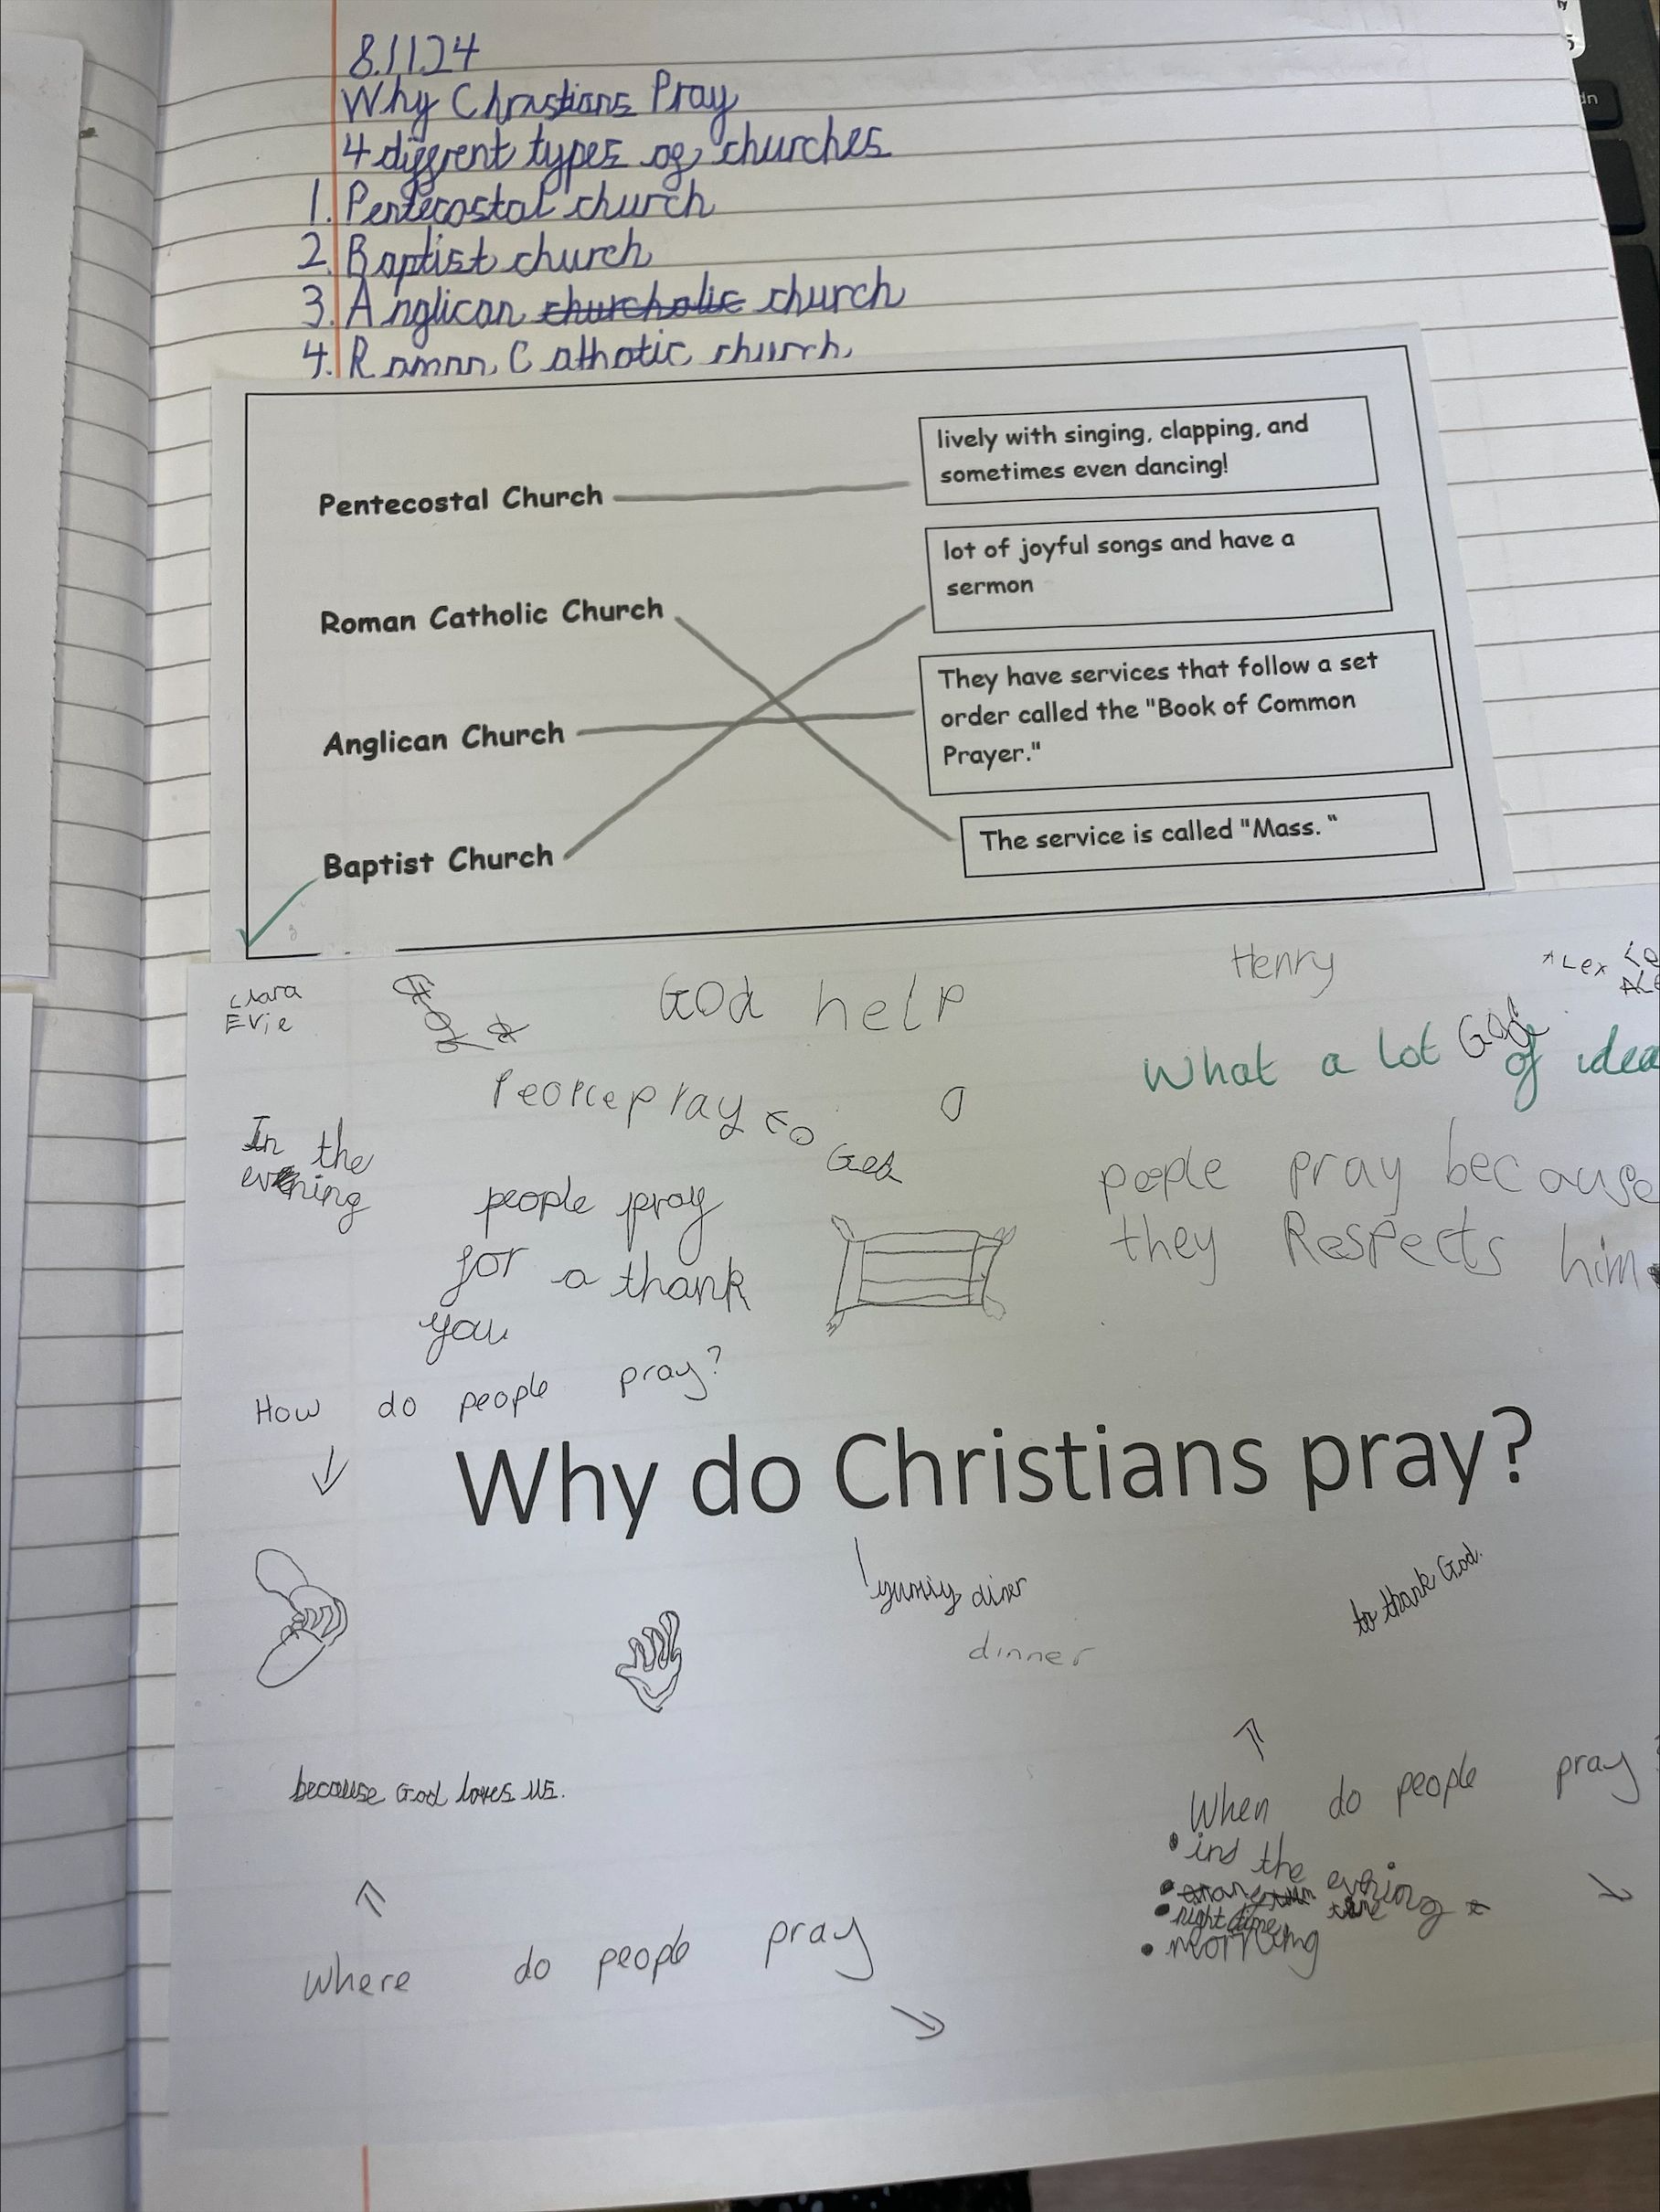 8.11.24
Why Christians Pray
4 different types of churches
1. Pentecostal church
2. Baptist church
3. Anglican churcholic church
4. Roman Catholic church
Pentecostal Church
lively with singing, clapping, and
sometimes even dancing!
Roman Catholic Church
lot of joyful songs and have a
sermon
Anglican Church
They have services that follow a set
order called the "Book of Common
Prayer."
Baptist Church
The service is called "Mass. "
Clara
Evie
God help
Henry
ALex
What a lot of idea
God
pray to
God
In the
evening
people pray
for a thank
you
people pray because
they Respects him
How do people pray?
Why do Christians pray?
yumiy diner
dinner
to thank God.
because God loves us.
When do people pray
• in the evening
• night time
• morning
Where do people pray